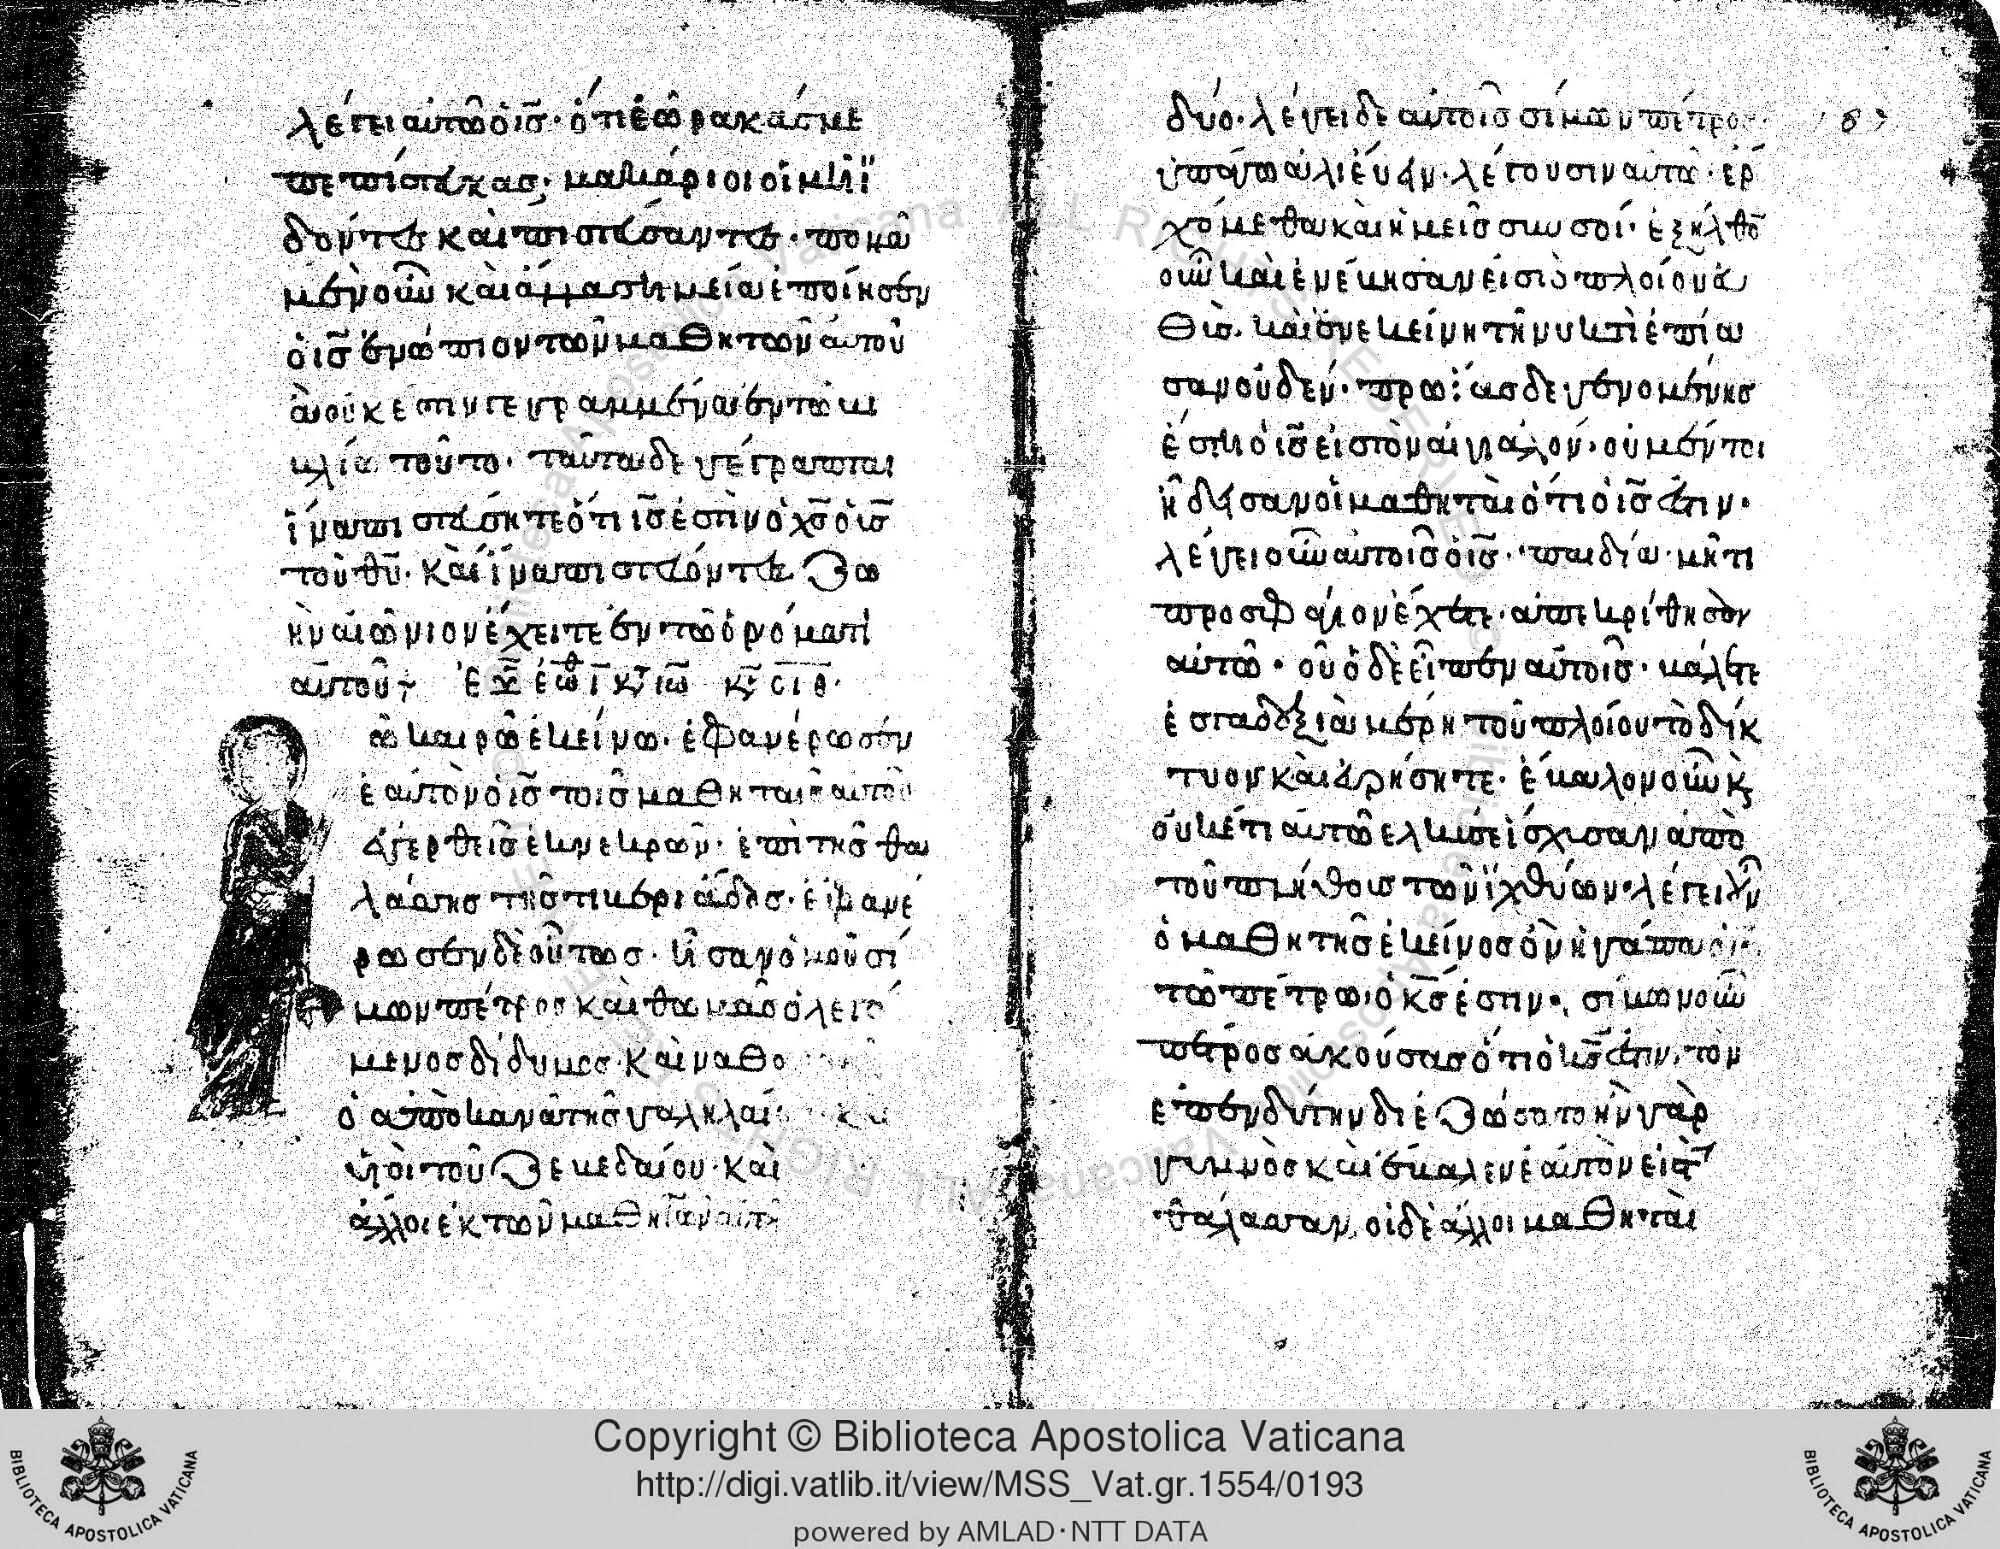 λέγει αὐτῶ ὁ ἰς̅· ὅτι ἑώρακάς με
πεπίστευκας· μακάριοι οἱ μὴ ἰ
δόντες καὶ πιστεύσαντες· πολλὰ
μὲν οὖν καὶ ἄλλα σημεῖα ἐποίησεν
ὁ ἰς̅ ἐνώπιον τῶν μαθητῶν αὐτοῦ
ἃ οὐκ ἔστιν γεγραμμένα ἐν τῶ βι
βλίω τοῦτο· ταῦτα δὲ γέγραπται
ἵνα πιστεύσητε ὅτι ἰς̅ ἐστὶν ὁ χς̅ ὁ υἱς̅
τοῦ θυ̅· καὶ ἵνα πιστεύοντες ζω
ὴν αἰώνιον ἔχειτε ἐν τῶ ὀνόματι
αὐτοῦ
ῶ καιρῶ ἐκείνω· ἐφανέρωσεν
ἑαυτὸν ὁ ἰς̅ τοῖς μαθηταῖς αὐτοῦ
ἐγερθεὶς ἐκ νεκρῶν· ἐπὶ τῆς θα
λάσσης τῆς τιβεριάδος· ἐφανέ
ρωσεν δὲ οὕτως· ἦσαν ὁμοῦ σί
μων πέτρος καὶ θωμᾶς ὁ λεγό
μενος δίδυμος· καὶ ναθα
ὁ ἀπὸ κανᾶ τῆς γαλιλαί
υἱοὶ τοῦ ζεβεδαίου· καὶ
ἄλλοι ἐκ τῶν μαθητῶν αὐτοῦ
δύο· λέγει δὲ αὐτοῖς σίμων πέτρος·
ὑπάγω ἁλιεύειν· λέγουσιν αὐτῶ· ἐρ
χόμεθα καὶ ἡμεῖς σὺν σοί· ἐξῆλθο̅
οὖν καὶ ἐνέβησαν εἰς τὸ πλοῖον εὐ
θὺς· καὶ ἐν ἐκείνη τῆ νυκτὶ ἐπία
σαν οὐδέν· πρωΐας δὲ γενομένης
ἔστη ὁ ἰς̅ εἰς τὸν αἰγιαλόν· οὐ μέντοι
ἤδεισαν οἱ μαθηταὶ ὅτι ὁ ἰς̅ ἐστιν·
λέγει οὖν αὐτοῖς ὁ ἰς̅· παιδία· μή τι
προσφάγιον ἔχετε· ἀπεκρίθησαν
αὐτῶ· οὔ ὁ δὲ εἶπεν αὐτοῖς· βάλετε
ἐς τὰ δεξιὰ μέρη τοῦ πλοίου τὸ δίκ
τυον καὶ εὑρήσητε· ἔβαλον οὖν κ
οὐκέτι αὐτὸ ἑλκύσει ἴσχυσαν ἀπὸ
τοῦ πλήθους τῶν ἰχθύων· λέγει οὖν
ὁ μαθητὴς ἐκεῖνος ὃν ἠγάπα ὁ ἰς̅
τῶ πέτρω· ὁ κς̅ ἐστιν· σίμων οὖν
πέτρος ἀκούσας ὅτι ὁ κς̅ ἐστιν· τὸν
ἐπενδύτην διεζώσατο ἦν γὰρ
γυμνὸς καὶ ἔβαλεν ἑαυτὸν εἰς τ
θάλασσαν, οἱ δὲ ἄλλοι μαθηταὶ
Copyright © Biblioteca Apostolica Vaticana
http://digi.vatlib.it/view/MSS_Vat.gr.1554/0193
powered by AMLAD·NTT DATA
BIBLIOTECA APOSTOLICA VATICANA
BIBLIOTECA APOSTOLICA VATICANA